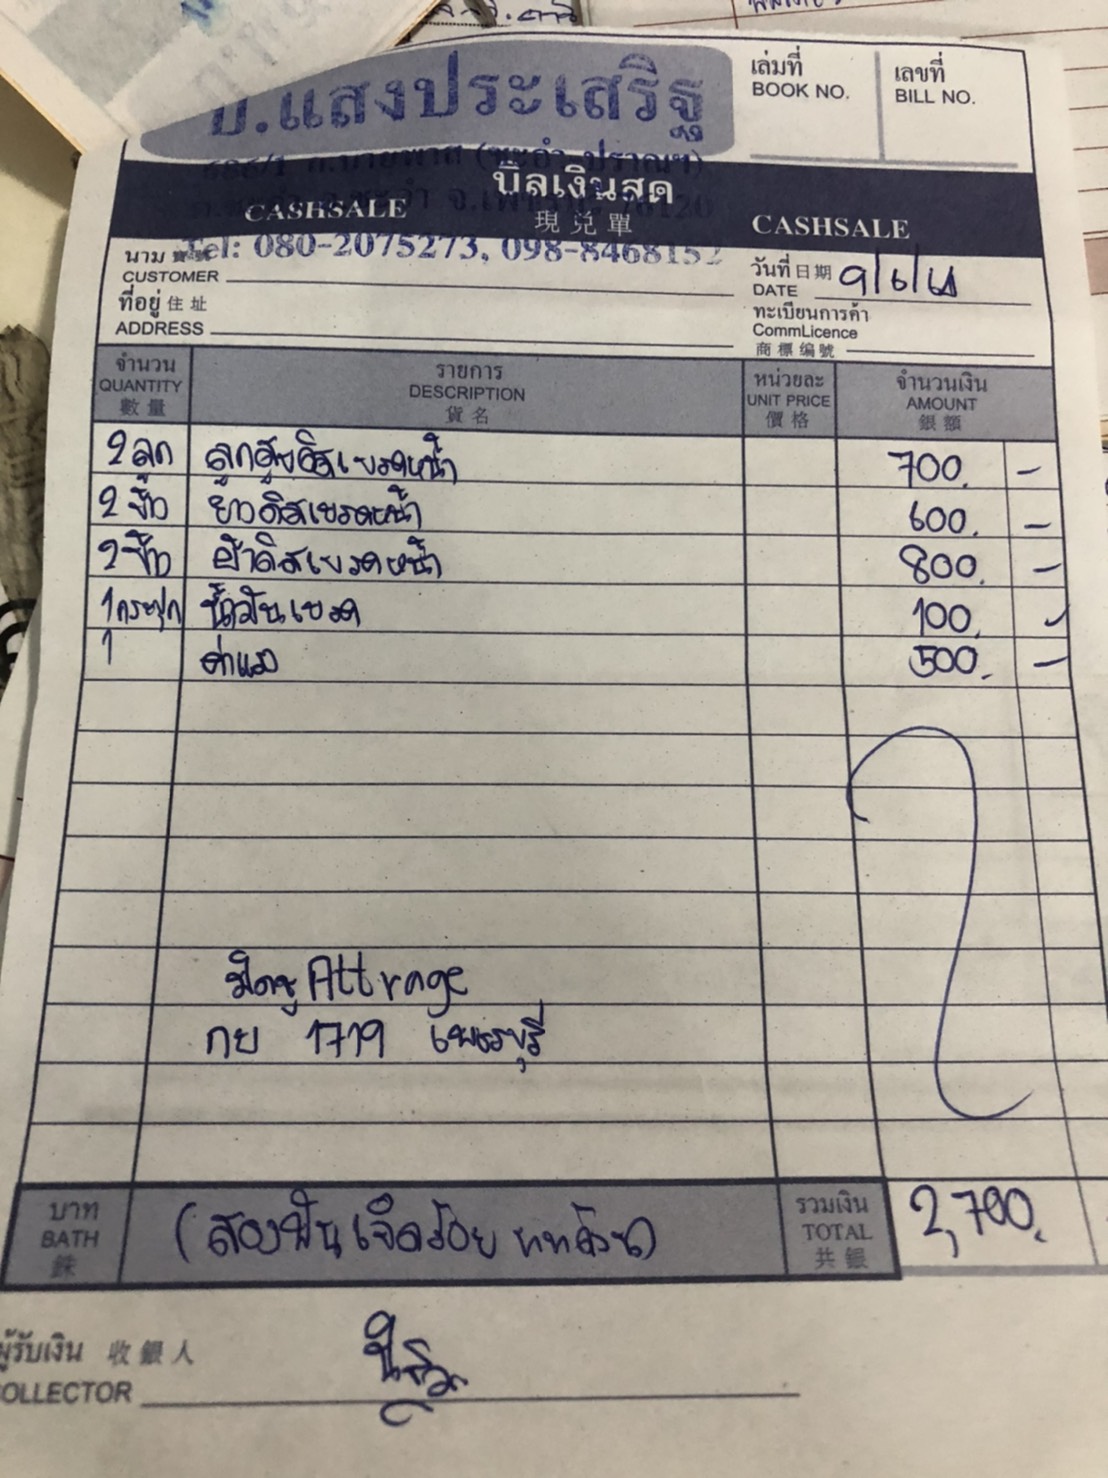 ป.แสงประเสริฐ
เล่มที่
BOOK NO.
เลขที่
BILL NO.
(ชะอำ-ปราณฯ)
บิลเงินสด
CASHSALE 現兌單 CASHSALE
Tel: 080-2075273, 098-8468152
นาม
CUSTOMER
วันที่ 日期 9/6/61
DATE
ที่อยู่ 住址
ADDRESS
ทะเบียนการค้า
CommLicence
商標編號
จำนวน รายการ หน่วยละ จำนวนเงิน
QUANTITY DESCRIPTION UNIT PRICE AMOUNT
數量 貨名 價格 銀額
2 ลูก ลูกสูบดิสเบรคหน้า 700. -
2 ชิ้ว ยางดิสเบรคหน้า 600. -
2 ชิ้ว ผ้าดิสเบรคหน้า 800. -
1 กระปุก น้ำมันเบรค 100. -
1 ค่าแรง 500. -
มิตซู Attrage
กย 1719 เพชรบุรี
บาท
BATH
銖
(สองพันเจ็ดร้อยบาทถ้วน)
รวมเงิน
TOTAL
共銀
2,700.
ผู้รับเงิน 收銀人
COLLECTOR